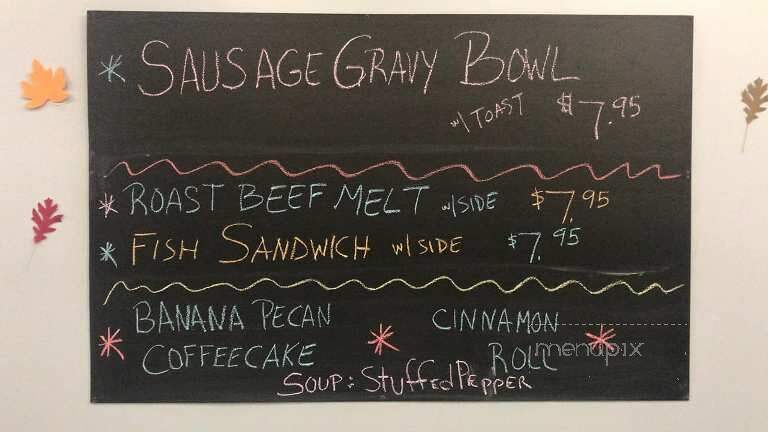 SAUSAGE GRAVY BOWL
w/ TOAST $7.95
ROAST BEEF MELT w/SIDE $7.95
FISH SANDWICH w/ SIDE $7.95
BANANA PECAN CINNAMON
COFFEECAKE ROLL
menupix
SOUP: Stuffed Pepper